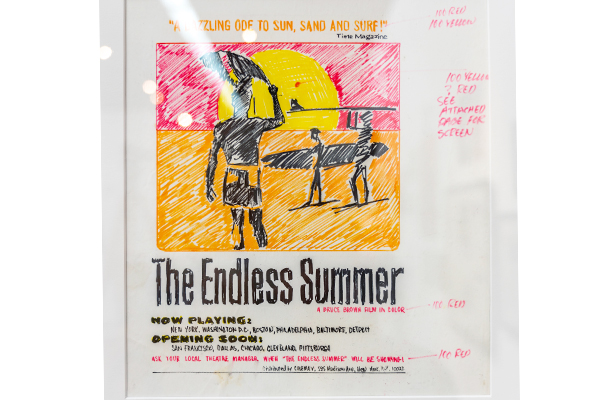 "A DAZZLING ODE TO SUN, SAND AND SURF!"
Time Magazine
100 RED
100 YELLOW
100 YELLOW
? RED
SEE
ATTACHED
PAGE FOR
SCREEN
The Endless Summer
A BRUCE BROWN FILM IN COLOR
100 RED
NOW PLAYING:
NEW YORK, WASHINGTON D.C., BOSTON, PHILADELPHIA, BALTIMORE, DETROIT
OPENING SOON:
SAN FRANCISCO, DALLAS, CHICAGO, CLEVELAND, PITTSBURGH
ASK YOUR LOCAL THEATRE MANAGER, WHEN "THE ENDLESS SUMMER" WILL BE SHOWING!
100 RED
Distributed by CINEMA V, 595 Madison Ave., N.Y. 10022